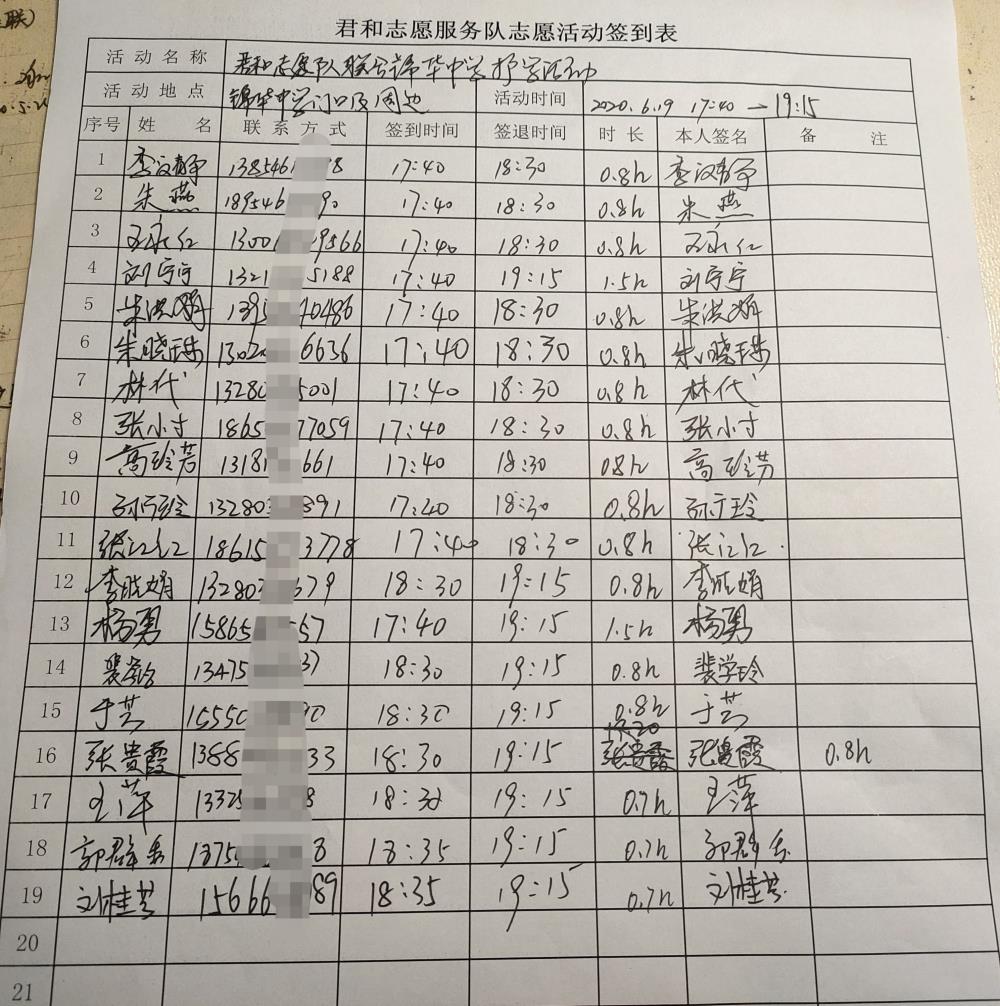 君和志愿服务队志愿活动签到表
活动名称 君和志愿队联合锦华中学护学活动
活动地点 锦华中学门口及周边 活动时间 2020.6.19 17:40—19:15
序号 姓名 联系方式 签到时间 签退时间 时长 本人签名 备注
1 李汶静 1385461 8 17:40 18:30 0.8h 李汶静
2 朱燕 189546 90 17:40 18:30 0.8h 朱燕
3 王永红 1300 9566 17:40 18:30 0.8h 王永红
4 刘宁宁 1321 5188 17:40 19:15 1.5h 刘宁宁
5 朱洪娟 1395 40486 17:40 18:30 0.8h 朱洪娟
6 朱晓珠 1302 6636 17:40 18:30 0.8h 朱晓珠
7 林代 13280 5001 17:40 18:30 0.8h 林代
8 张小寸 1865 77059 17:40 18:30 0.8h 张小寸
9 高珍芳 13181 661 17:40 18:30 0.8h 高珍芳
10 孙玲 13280 891 17:40 18:30 0.8h 孙玲
11 张江红 18615 3778 17:40 18:30 0.8h 张江红
12 李晓娟 13280 679 18:30 19:15 0.8h 李晓娟
13 杨勇 15865 557 17:40 19:15 1.5h 杨勇
14 裴学玲 13475 37 18:30 19:15 0.8h 裴学玲
15 于芸 15550 90 18:30 19:15 0.8h 于芸
16 张贵霞 1388 33 18:30 19:15 张贵霞 张贵霞 0.8h
17 王萍 13325 8 18:30 19:15 0.7h 王萍
18 郭群 1875 8 18:35 19:15 0.7h 郭群
19 刘桂芸 15666 89 18:35 19:15 0.7h 刘桂芸
20
21